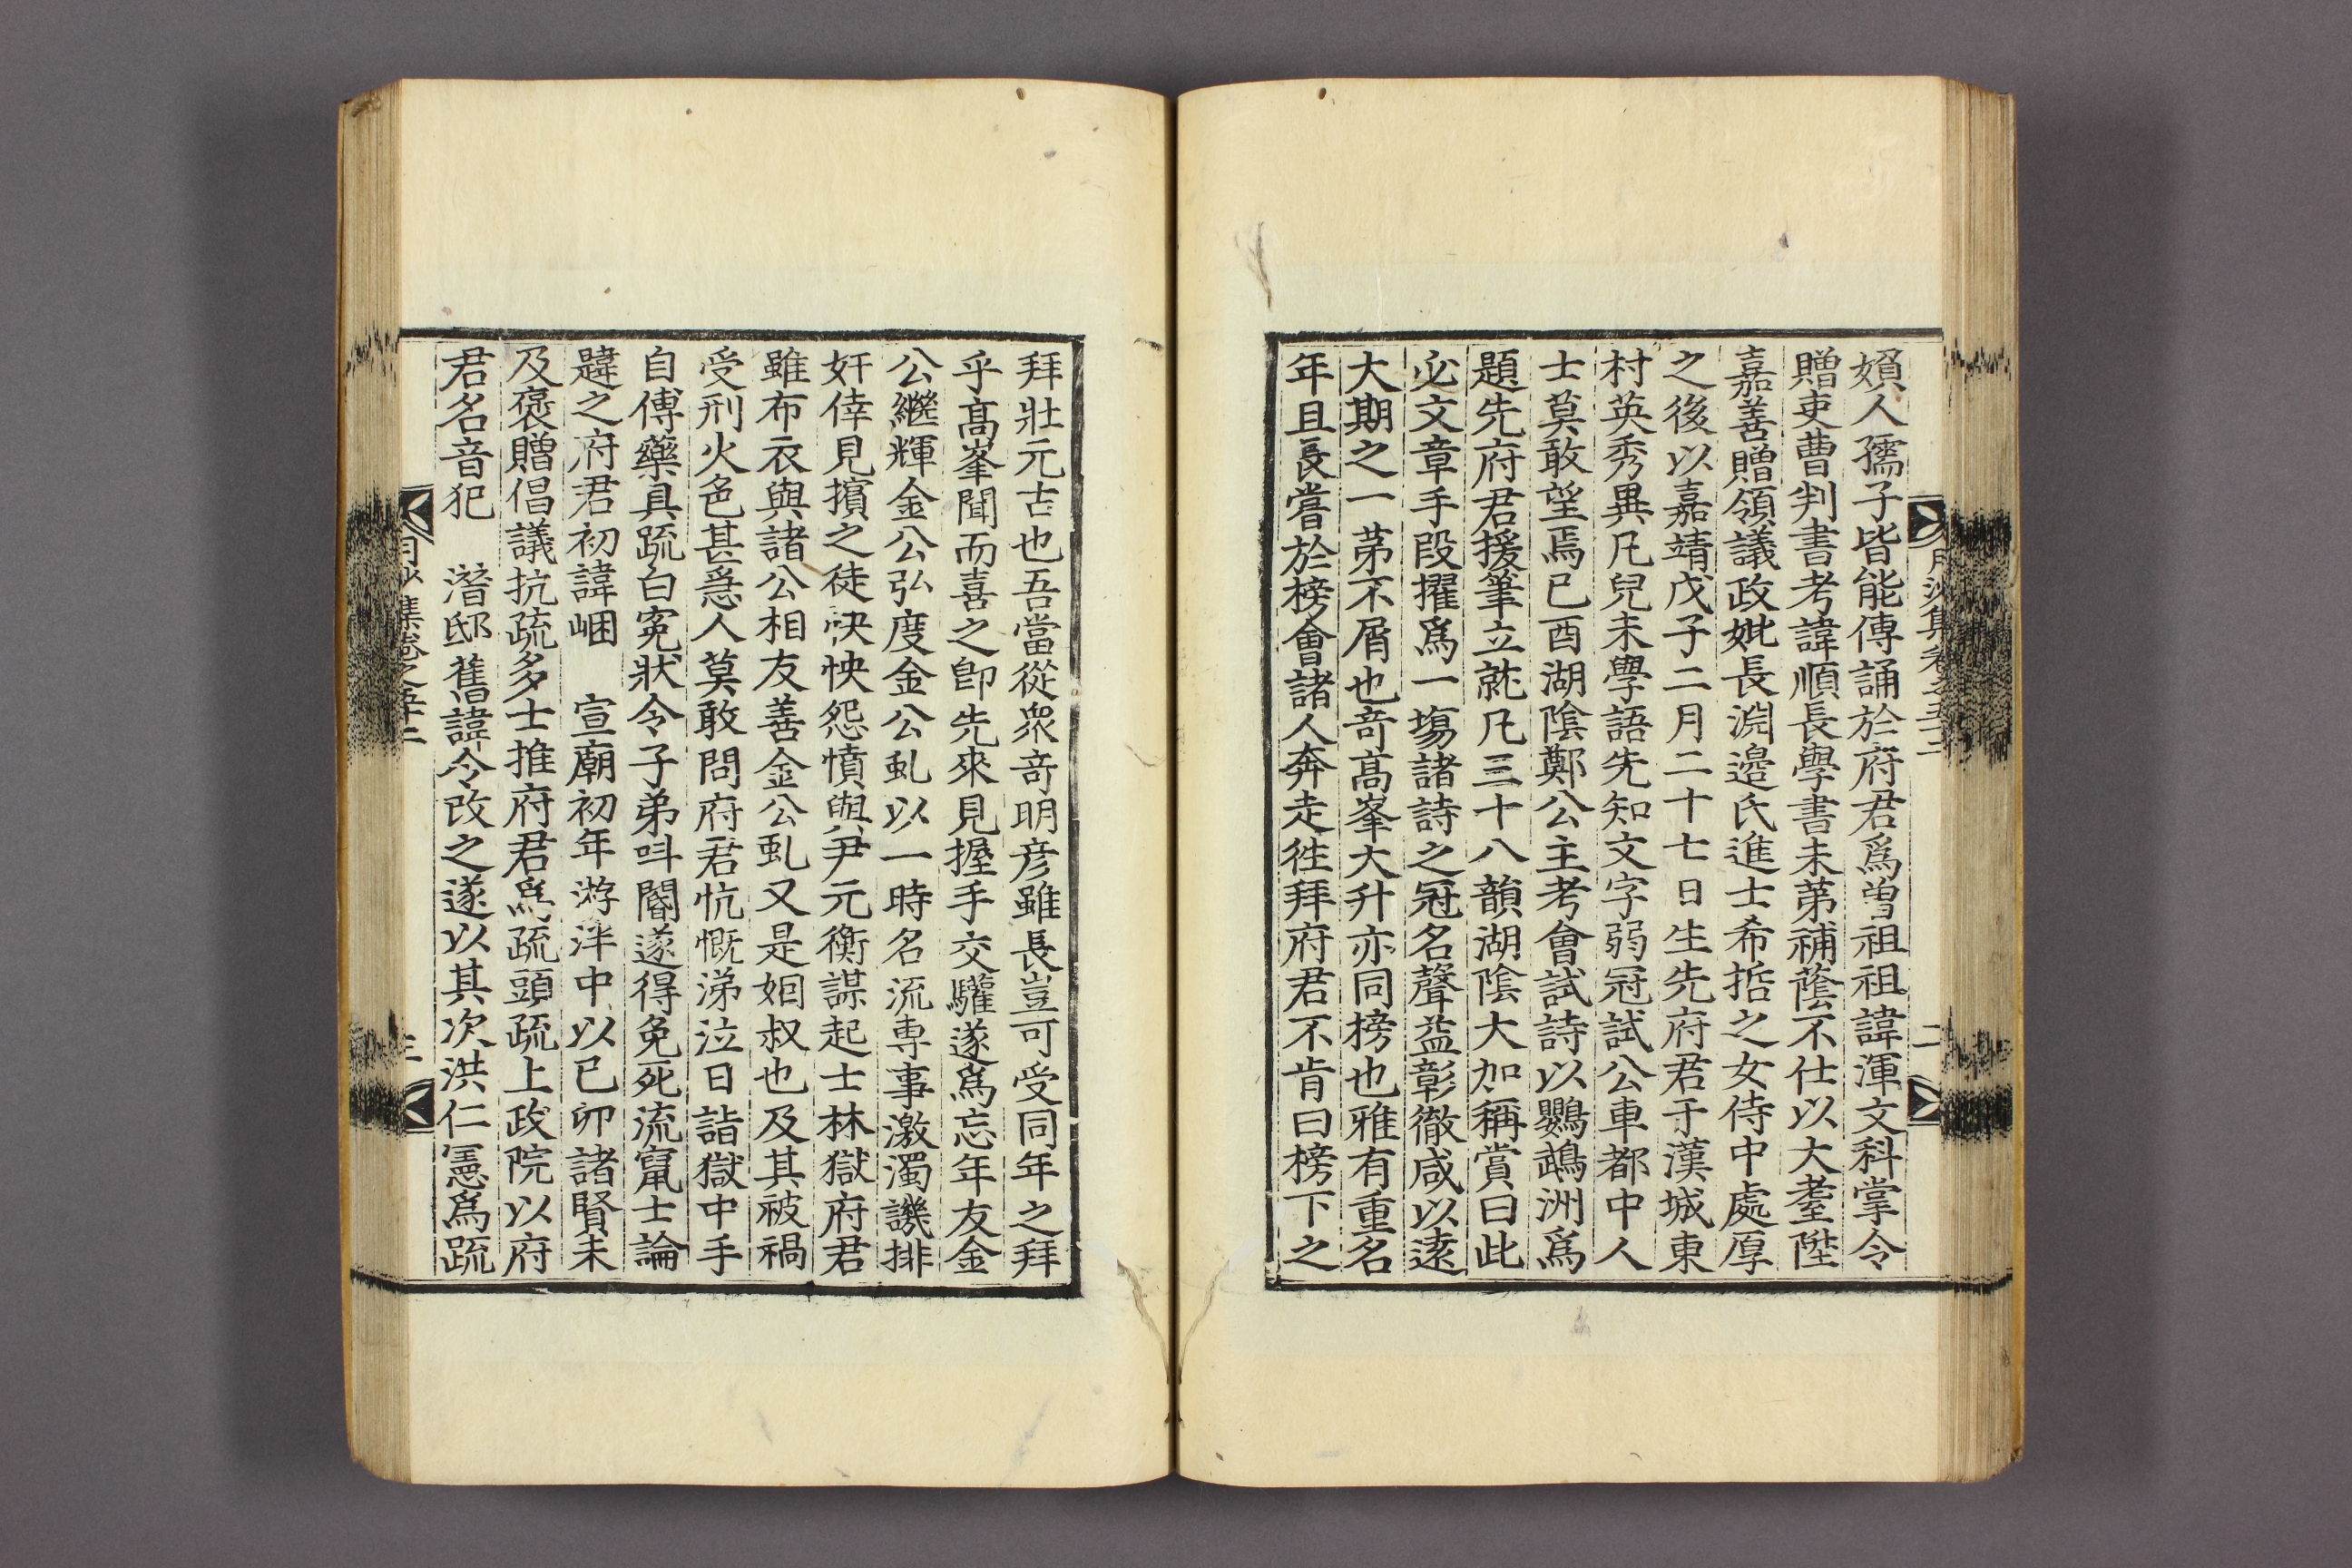 嬪人孺子皆能傳誦於府君爲曽祖祖諱渾文科掌令
贈吏曹判書考諱順長學書未第補蔭不仕以大耋陞
嘉善贈領議政妣長淵邉氏進士希哲之女侍中處厚
之後以嘉靖戊子二月二十七日生先府君于漢城東
村英秀異凡兒未學語先知文字弱冠試公車都中人
士莫敢望焉己酉湖陰鄭公主考會試詩以鸚鵡洲爲
題先府君援筆立就凡三十八韻湖陰大加稱賞曰此
必文章手段擢爲一塲諸詩之冠名聲益彰徹咸以逺
大期之一苐不屑也竒髙峯大升亦同榜也雅有重名
年且長嘗於榜會諸人奔走徃拜府君不肯曰榜下之
月沙集卷之五十二
二
拜壯元古也吾當從衆竒明彦雖長豈可受同年之拜
乎髙峯聞而喜之卽先來見握手交驩遂爲忘年友金
公繼輝金公弘度金公虬以一時名流専事激濁譏排
奸倖見擯之徒怏怏怨憤與尹元衡謀起士林獄府君
雖布衣與諸公相友善金公虬又是姻叔也及其被禍
受刑火色甚急人莫敢問府君忼慨涕泣日詣獄中手
自傅藥具疏白寃狀令子弟叫閽遂得免死流竄士論
韙之府君初諱崓　宣廟初年游泮中以己卯諸賢未
及褒贈倡議抗疏多士推府君爲疏頭疏上政院以府
君名音犯　潛邸舊諱令改之遂以其次洪仁憲爲疏
月沙集卷之五十二
三